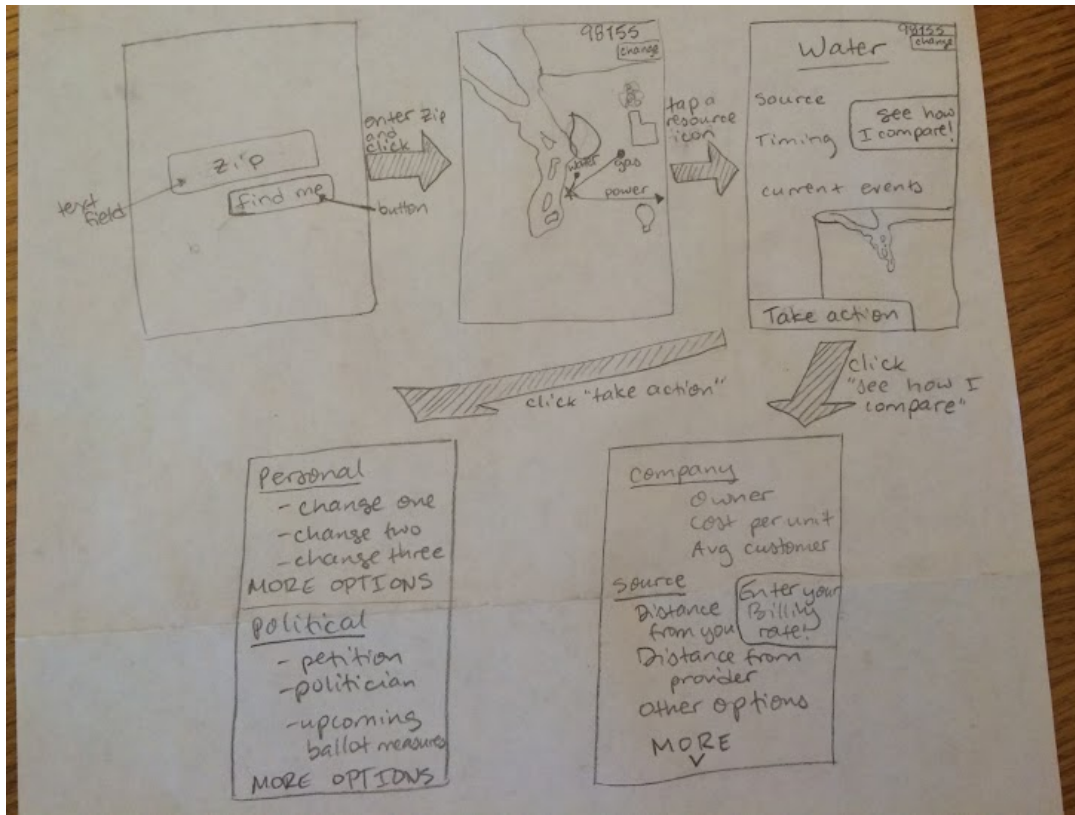 zip
find me
text
field
button
enter zip
and
click
98155
change
water
gas
power
tap a
resource
icon
98155
change
Water
Source
see how
I compare!
Timing
current events
Take action
click "take action"
click
"see how I
compare"
Personal
- change one
- change two
- change three
MORE OPTIONS
Political
- petition
- politician
- upcoming
ballot measures
MORE OPTIONS
Company
Owner
Cost per unit
Avg customer
Source
Enter your
Billing
rate!
Distance
from you
Distance from
provider
other options
MORE